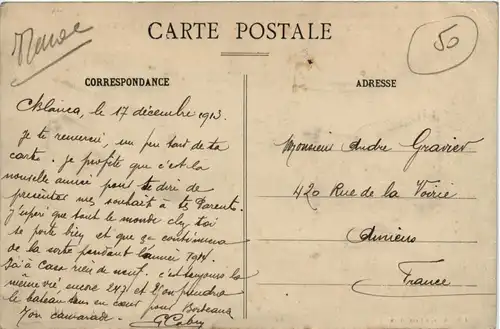 Maroc
50
CARTE POSTALE
CORRESPONDANCE
ADRESSE
Cblanca, le 17 décembre 1913.
je te remercie, un peu tard de ta
carte. je profite que c'est la
nouvelle année pour te dire de
présenter mes souhaits à tes Parents.
J'espère que tout le monde chez toi
se porte bien et que ça continuera
de la sorte pendant l'année 1914.
Ici à Casa rien de neuf. c'est toujours la
même vie, encore 247 et l'on prendra
le bateau pour Bordeaux
Ton camarade.
Monsieur Andre Gravier
420 Rue de la Voirie
Amiens
France